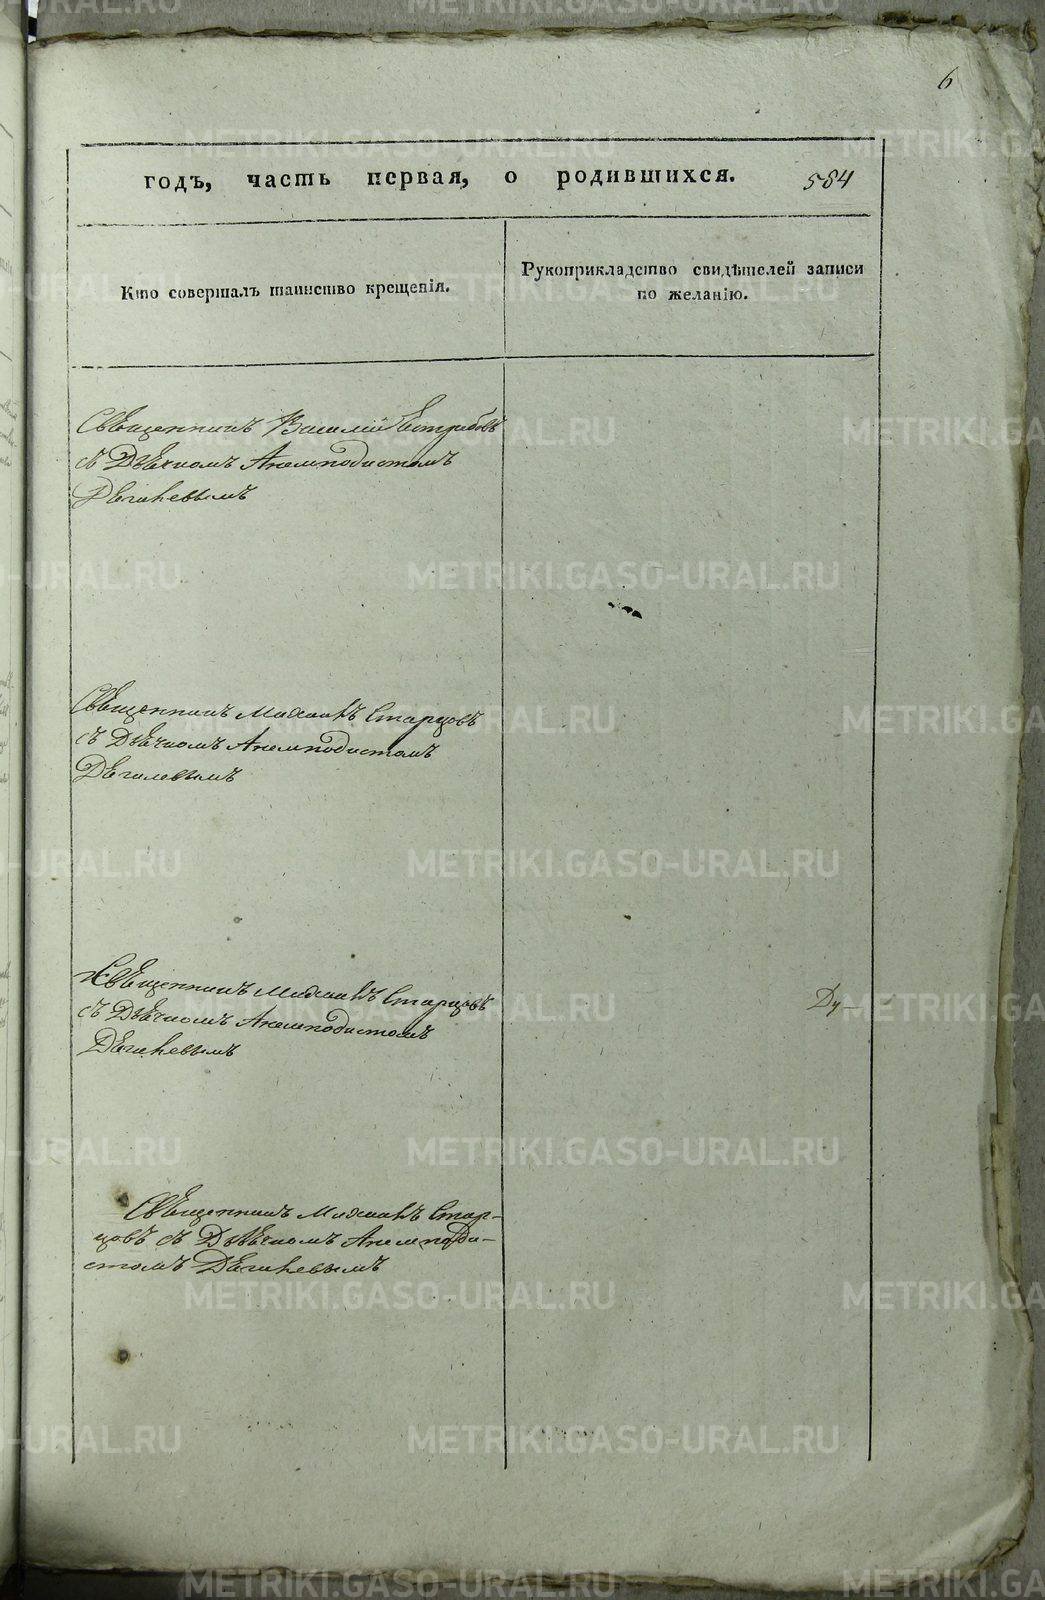 6
годъ, часть первая, о родившихся. 584
Кто совершалъ таинство крещенія.
Рукоприкладство свидѣтелей записи
по желанію.
Священникъ Василій Ястребовъ
съ Дьячкомъ Анемподистомъ
Дягилевымъ
Священникъ Михаилъ Старцовъ
съ Дьячкомъ Анемподистомъ
Дягилевымъ
Священникъ Михаилъ Старцовъ
съ Дьячкомъ Анемподистомъ
Дягилевымъ
Ду
Священникъ Михаилъ Стар-
цовъ съ Дьячкомъ Анемподи-
стомъ Дягилевымъ
METRIKI.GASO-URAL.RU